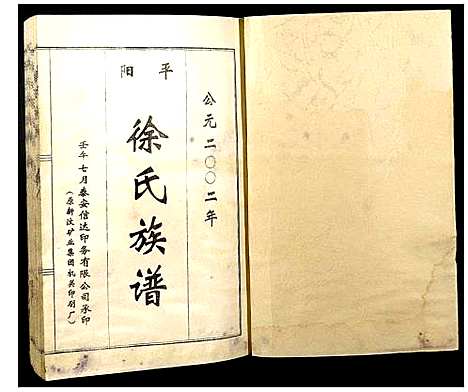 平阳
公元二〇〇二年
徐氏族谱
壬午七月泰安信达印务有限公司承印
（原新汶矿业集团机关印刷厂）